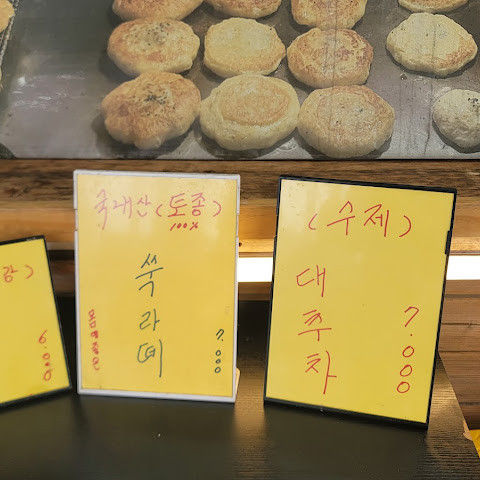 강)
6.000
국내산(토종)
100%
쑥
라
떼
7.000
(수제)
대
추
차
7.000